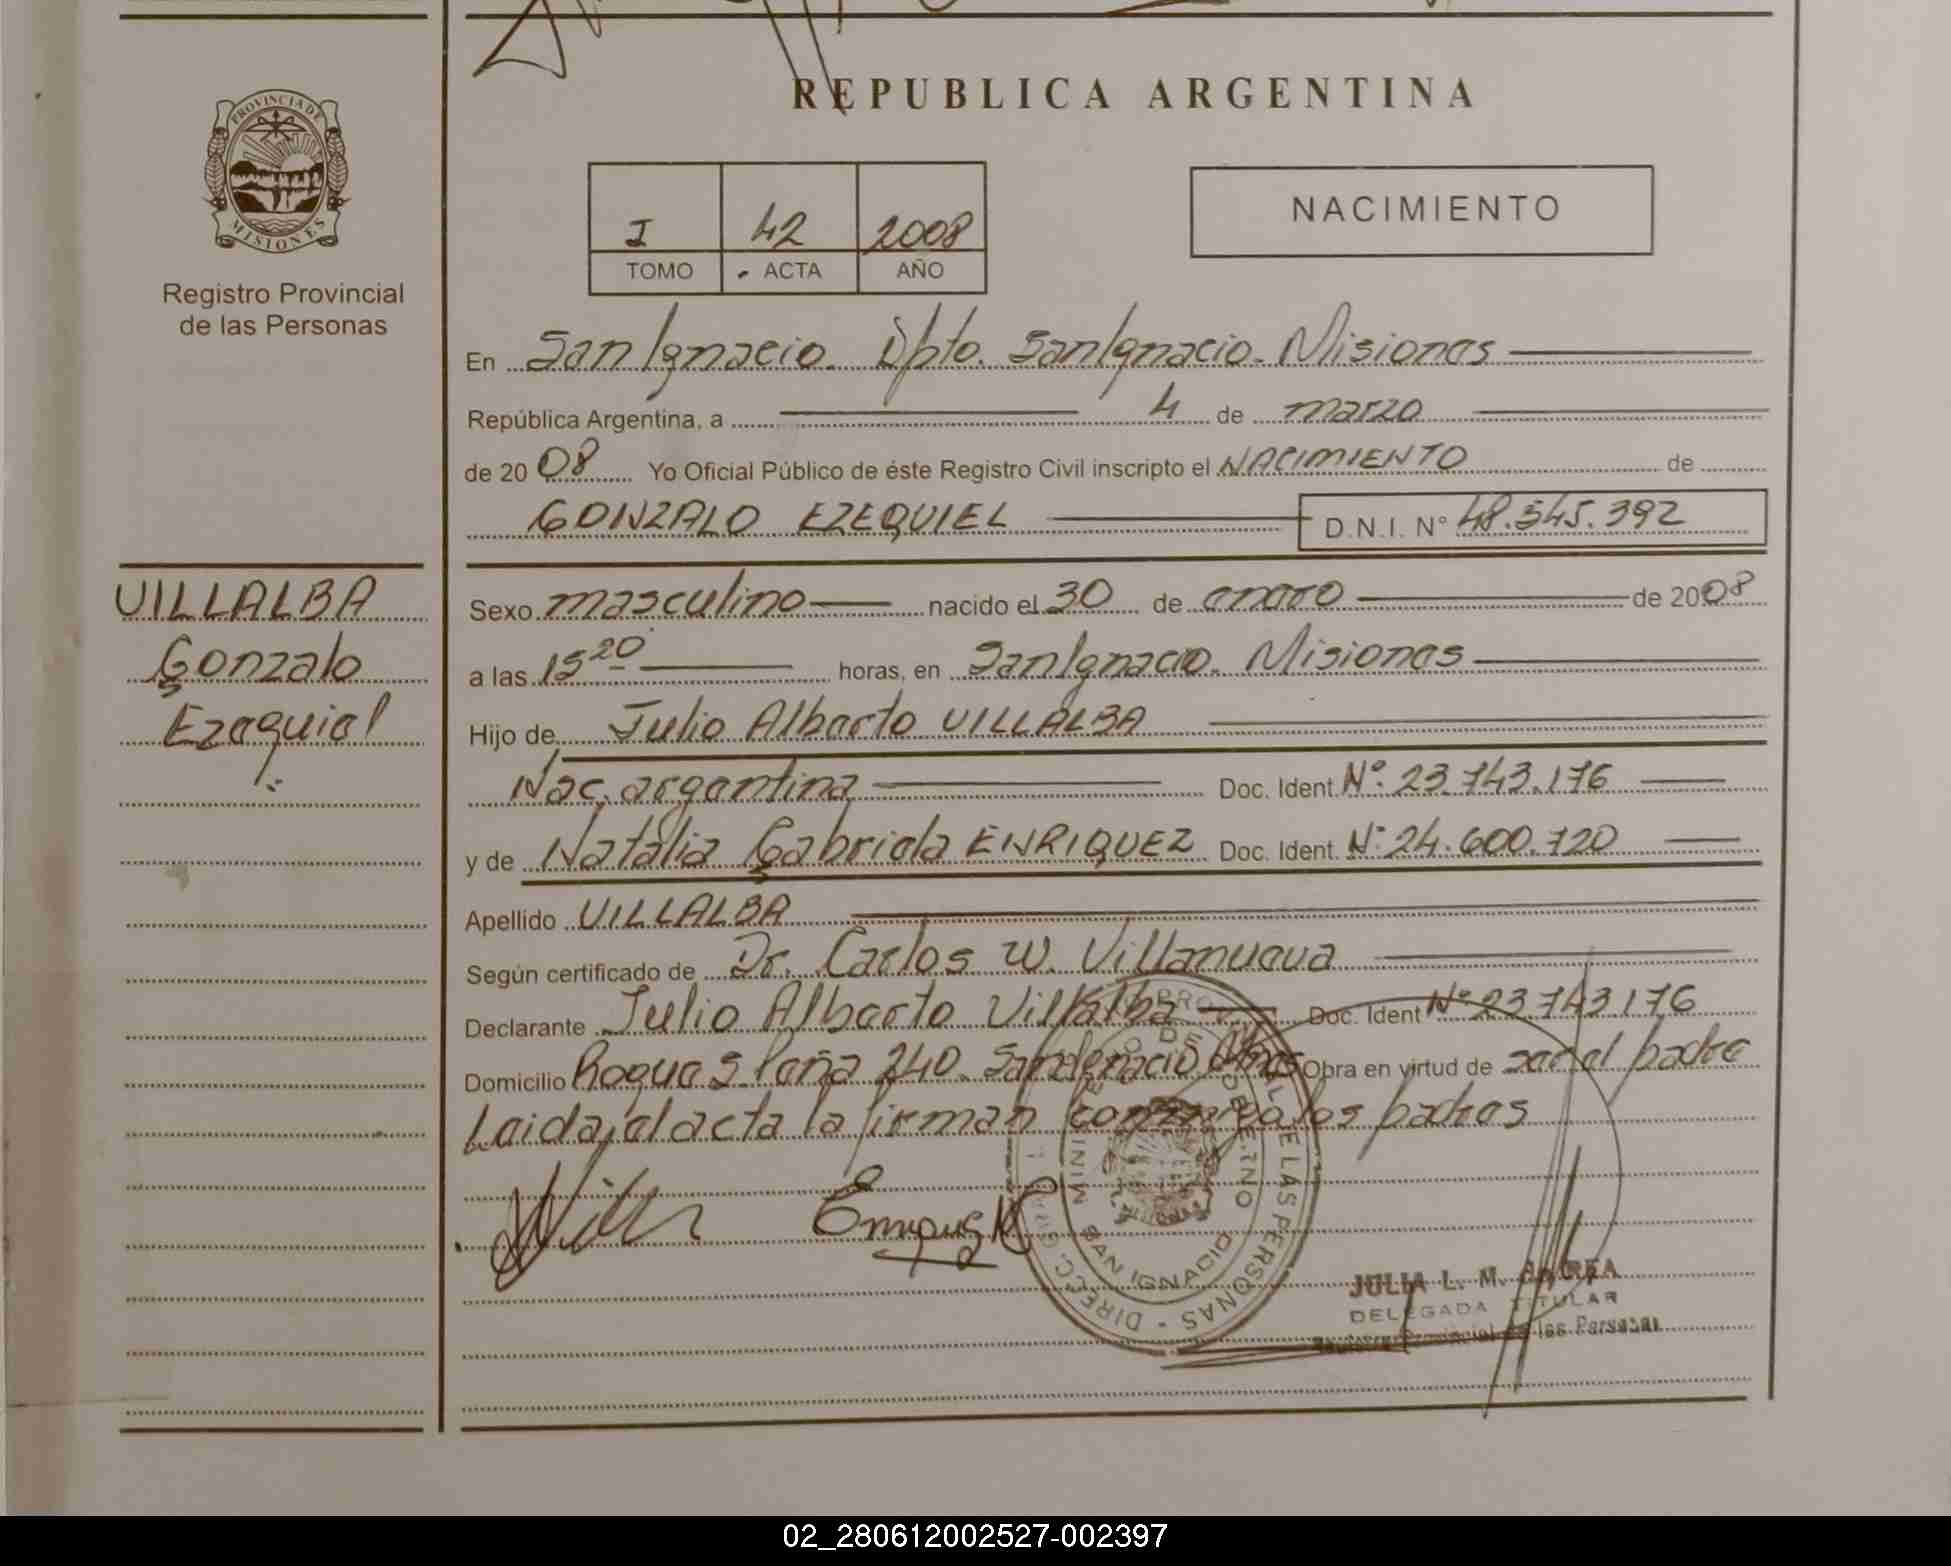 REPUBLICA ARGENTINA
PROVINCIA DE
MISIONES
Registro Provincial
de las Personas
I 42 2008
TOMO ACTA AÑO
NACIMIENTO
En San Ignacio. Dpto. San Ignacio. Misiones
República Argentina, a 4 de marzo
de 20 08 Yo Oficial Público de éste Registro Civil inscripto el NACIMIENTO de
GONZALO EZEQUIEL D.N.I. N° 48.545.392
VILLALBA
Gonzalo
Ezequiel
Sexo masculino nacido el 30 de enero de 2008
a las 15 20 horas, en San Ignacio. Misiones
Hijo de Julio Alberto VILLALBA
Nac. argentina Doc. Ident. N°. 23.743.176
y de Natalia Gabriela ENRIQUEZ Doc. Ident. N° 24.600.720
Apellido VILLALBA
Según certificado de Dr. Carlos W. Villanueva
Declarante Julio Alberto Villalba Doc. Ident N° 23.743.176
Domicilio Roque S. Peña 240. San Ignacio Mnes Obra en virtud de ser el padre
Leida, el acta la firman conmigo los padres
Enriquez N
SAN IGNACIO
JULIA L. M. CORREA
DELEGADA TITULAR
Registro Provincial de las Personas
02_280612002527-002397